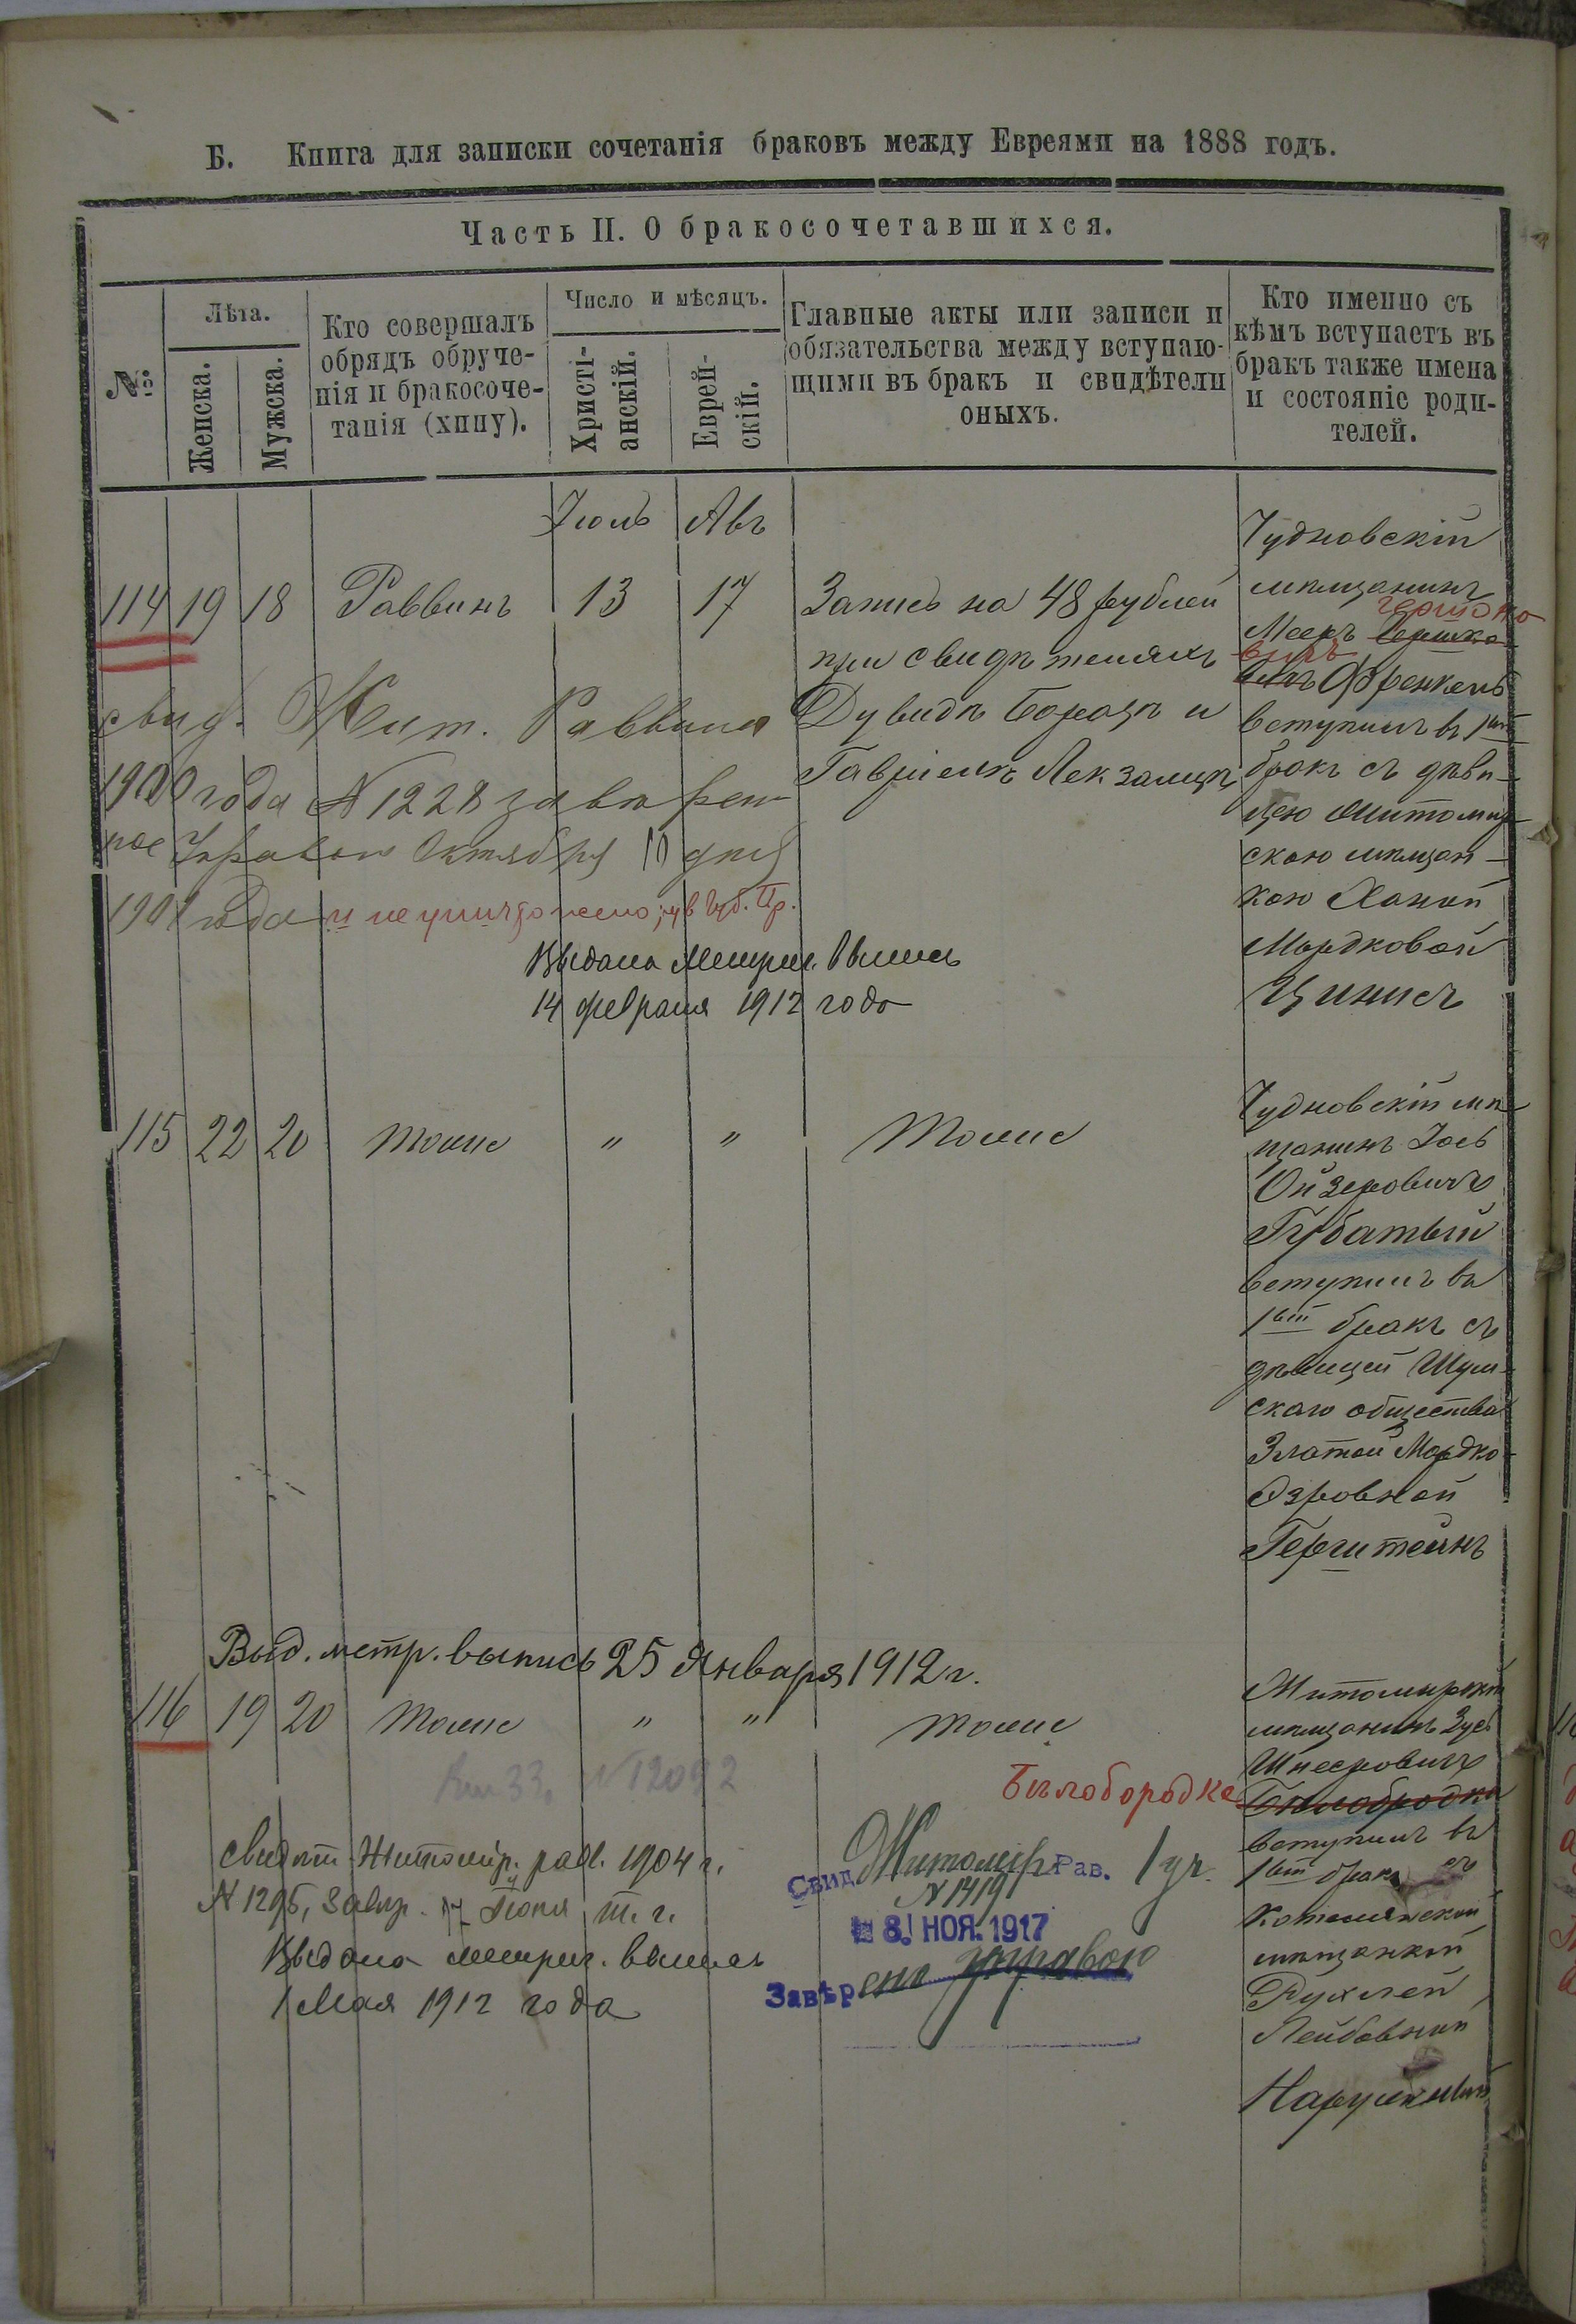 Б. Книга для записки сочетанія браковъ между Евреями на 1888 годъ.
Часть II. О бракосочетавшихся.
№
Лѣта.
Женска.
Мужска.
Кто совершалъ
обрядъ обруче-
нія и бракосоче-
танія (хипу).
Число и мѣсяцъ.
Христі-
анскій.
Еврей-
скій.
Главные акты или записи и
обязательства между вступаю-
щими въ бракъ и свидѣтели
оныхъ.
Кто именно съ
кѣмъ вступаетъ въ
бракъ также имена
и состояніе роди-
телей.
Іюль Авъ
114 19 18 Раввинъ 13 17
Запись на 48 рублей
при свидѣтеляхъ
Дувидъ Борацъ и
Гавріелъ Лекзалцъ
Чудновскій
мѣщанинъ
Гершоно
Мееръ Гершко
вичъ
вичъ Френкель
вступилъ въ 1ый
бракъ съ дѣви-
цею Житомир-
скою мѣщан-
кою Ханой
Мордковой
Цинисъ
свид. Жит. Раввина
1900 года № 1228
Управою Октября 10 дня
190 года и не уничтожено въ Губ. Пр.
Выдана Метрич. Выпись
14 февраля 1912 года
115 22 20 тоже " " Тоже
Чудновскій мѣ-
щанинъ Іось
Ойзеровичъ
Губатый
вступилъ въ
1ый бракъ съ
дѣвицей Шум-
скаго общества
Златой Мордко-
Озровной
Герштейнъ
Выд. метр. выпись 25 Января 1912 г.
116 19 20 тоже " " тоже
№ 12092
Житомирскій
мѣщанинъ Зусь
Шнееровичъ
Бѣлобородка
Бѣлобродка
вступилъ въ
1ый бракъ съ
Котельнской
мѣщанкой
Рухлей
Лейбовной
свидѣт. Житомір. рав. 1904 г.
№ 1295, завѣр. 17 Іюня т. г.
Выдана метрич. выпись
1 Мая 1912 года
Свид. Житомир Рав. 1 уч.
№ 1419
8. НОЯ. 1917
Завѣрено управою